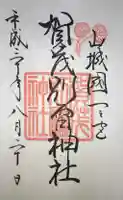 山城國一之宮
賀茂別雷神社
平成二十年八月二十日